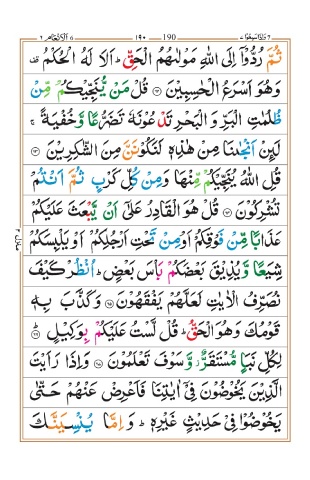 وَاِذَا سَمِعُوا ٧ ١٩٠ 190 اَلْاَنْعَام ٦
ثُمَّ رُدُّوْٓا اِلَى اللّٰهِ مَوْلٰىهُمُ الْحَقِّ ؕ اَلَا لَهُ الْحُكْمُ
وَهُوَ اَسْرَعُ الْحٰسِبِيْنَ ﴿۶۲﴾ قُلْ مَنْ يُّنَجِّيْكُمْ مِّنْ
ظُلُمٰتِ الْبَرِّ وَالْبَحْرِ تَدْعُوْنَهٗ تَضَرُّعًا وَّخُفْيَةً ۚ
لَئِنْ اَنْجٰىنَا مِنْ هٰذِهٖ لَنَكُوْنَنَّ مِنَ الشّٰكِرِيْنَ ﴿۶۳﴾
قُلِ اللّٰهُ يُنَجِّيْكُمْ مِّنْهَا وَمِنْ كُلِّ كَرْبٍ ثُمَّ اَنْتُمْ
تُشْرِكُوْنَ ﴿۶۴﴾ قُلْ هُوَ الْقَادِرُ عَلٰٓى اَنْ يَّبْعَثَ عَلَيْكُمْ
عَذَابًا مِّنْ فَوْقِكُمْ اَوْ مِنْ تَحْتِ اَرْجُلِكُمْ اَوْ يَلْبِسَكُمْ
شِيَعًا وَّيُذِيْقَ بَعْضَكُمْ بَاْسَ بَعْضٍ ؕ اُنْظُرْ كَيْفَ
نُصَرِّفُ الْاٰيٰتِ لَعَلَّهُمْ يَفْقَهُوْنَ ﴿۶۵﴾ وَكَذَّبَ بِهٖ
قَوْمُكَ وَهُوَ الْحَقُّ ؕ قُلْ لَّسْتُ عَلَيْكُمْ بِوَكِيْلٍ ﴿۶۶﴾
لِكُلِّ نَبَاٍ مُّسْتَقَرٌّ وَّسَوْفَ تَعْلَمُوْنَ ﴿۶۷﴾ وَاِذَا رَاَيْتَ
الَّذِيْنَ يَخُوْضُوْنَ فِيْٓ اٰيٰتِنَا فَاَعْرِضْ عَنْهُمْ حَتّٰى
يَخُوْضُوْا فِيْ حَدِيْثٍ غَيْرِهٖ ؕ وَاِمَّا يُنْسِيَنَّكَ